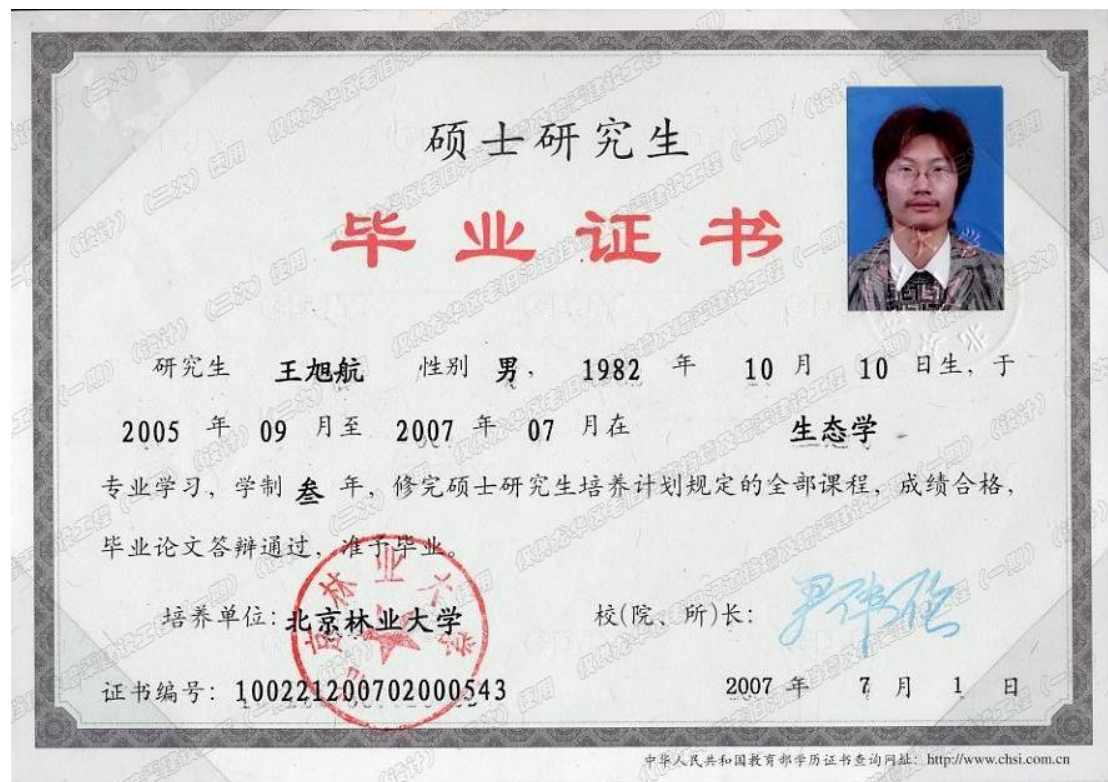 硕士研究生
毕业证书
研究生 王旭航 性别 男, 1982 年 10 月 10 日生, 于
2005 年 09 月至 2007 年 07 月在 生态学
专业学习, 学制 叁 年, 修完硕士研究生培养计划规定的全部课程, 成绩合格,
毕业论文答辩通过, 准予毕业。
培养单位: 北京林业大学 校(院、所)长:
证书编号: 100221200702000543 2007 年 7 月 1 日
中华人民共和国教育部学历证书查询网址: http://www.chsi.com.cn